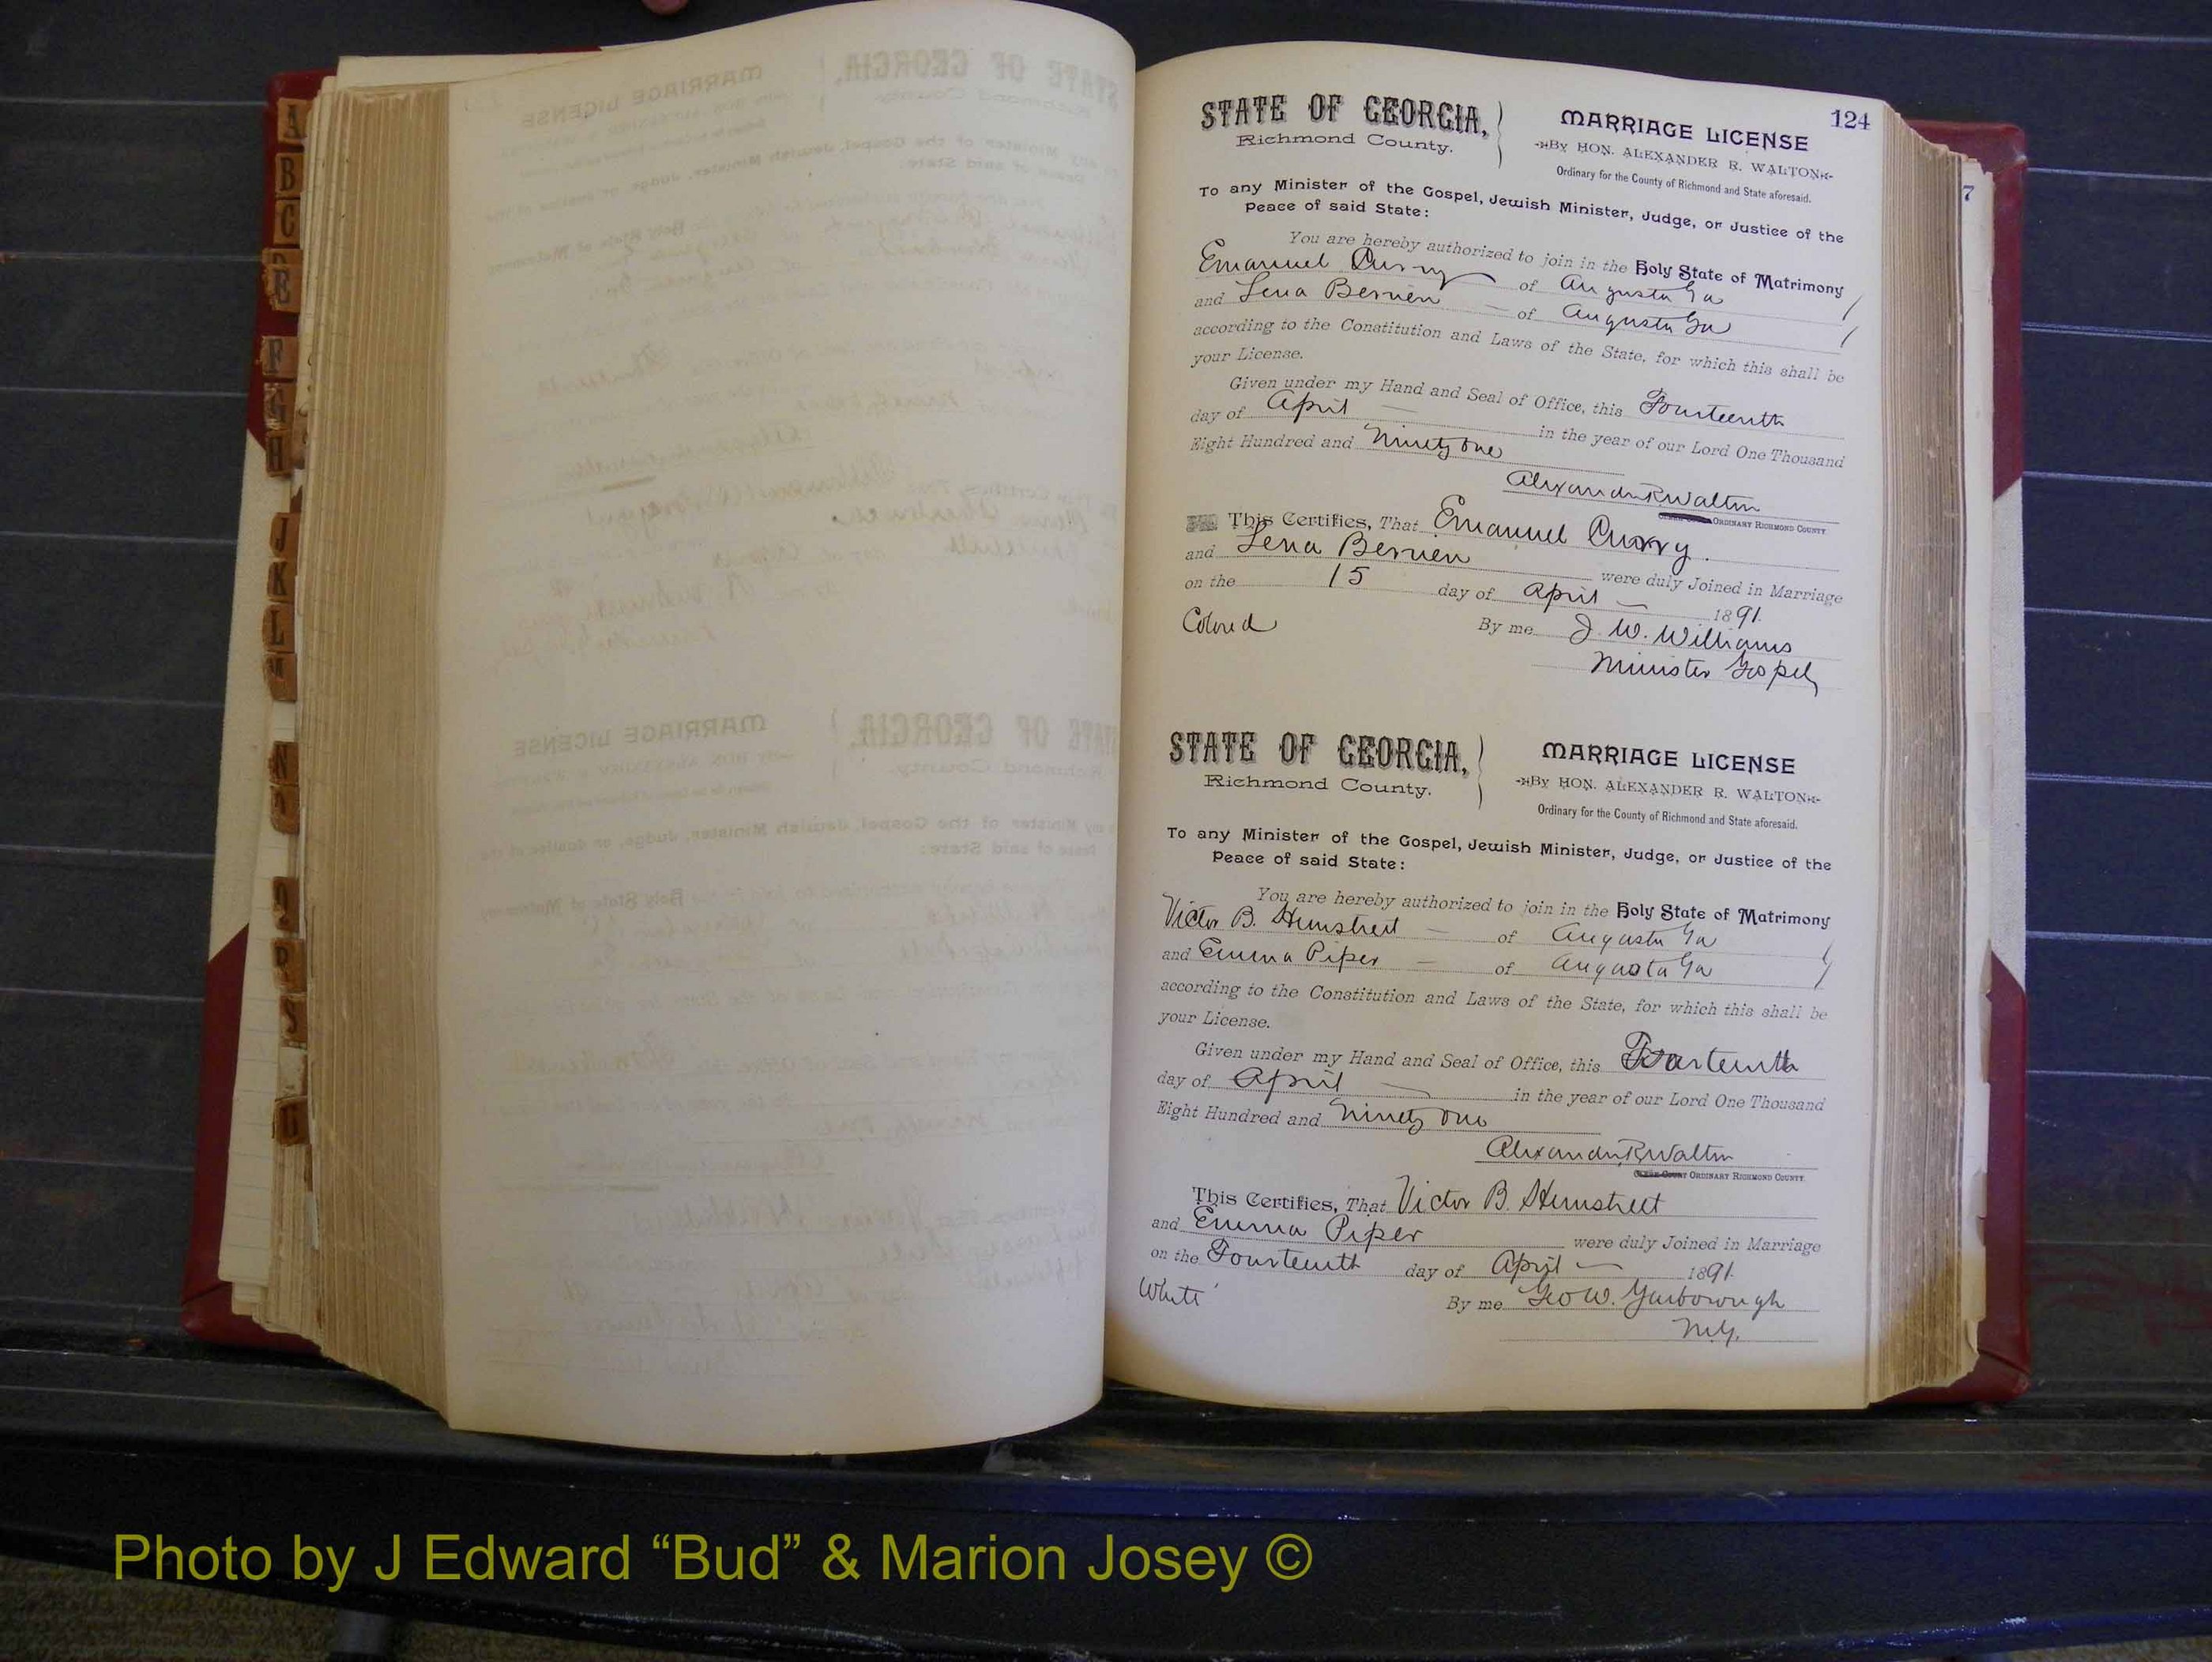 A
B
C
E
F
G
H
J
K
L
M
N
O
Q
R
S
U
124
7
STATE OF GEORGIA,
Richmond County.
MARRIAGE LICENSE
By HON. ALEXANDER R. WALTON
Ordinary for the County of Richmond and State aforesaid.
To any Minister of the Gospel, Jewish Minister, Judge, or Justice of the
Peace of said State:
You are hereby authorized to join in the Holy State of Matrimony
Emanuel Curry of Augusta Ga
and Lena Berrien of Augusta Ga
according to the Constitution and Laws of the State, for which this shall be
your License.
Given under my Hand and Seal of Office, this Fourteenth
day of April in the year of our Lord One Thousand
Eight Hundred and Ninety One
Alexander R Walton
ORDINARY RICHMOND COUNTY
This Certifies, That Emanuel Curry.
and Lena Berrien were duly Joined in Marriage
on the 15 day of April 1891.
Colored By me J. W. Williams
Minister Gospel
STATE OF GEORGIA,
Richmond County.
MARRIAGE LICENSE
By HON. ALEXANDER R. WALTON
Ordinary for the County of Richmond and State aforesaid.
To any Minister of the Gospel, Jewish Minister, Judge, or Justice of the
Peace of said State:
You are hereby authorized to join in the Holy State of Matrimony
Victor B. Hemstreet of Augusta Ga
and Emma Piper of Augusta Ga
according to the Constitution and Laws of the State, for which this shall be
your License.
Given under my Hand and Seal of Office, this Fourteenth
day of April in the year of our Lord One Thousand
Eight Hundred and Ninety One
Alexander R Walton
ORDINARY RICHMOND COUNTY
This Certifies, That Victor B. Hemstreet
and Emma Piper were duly Joined in Marriage
on the Fourteenth day of April 1891.
White By me Geo W. Yarborough
M.G.
Photo by J Edward “Bud” & Marion Josey ©